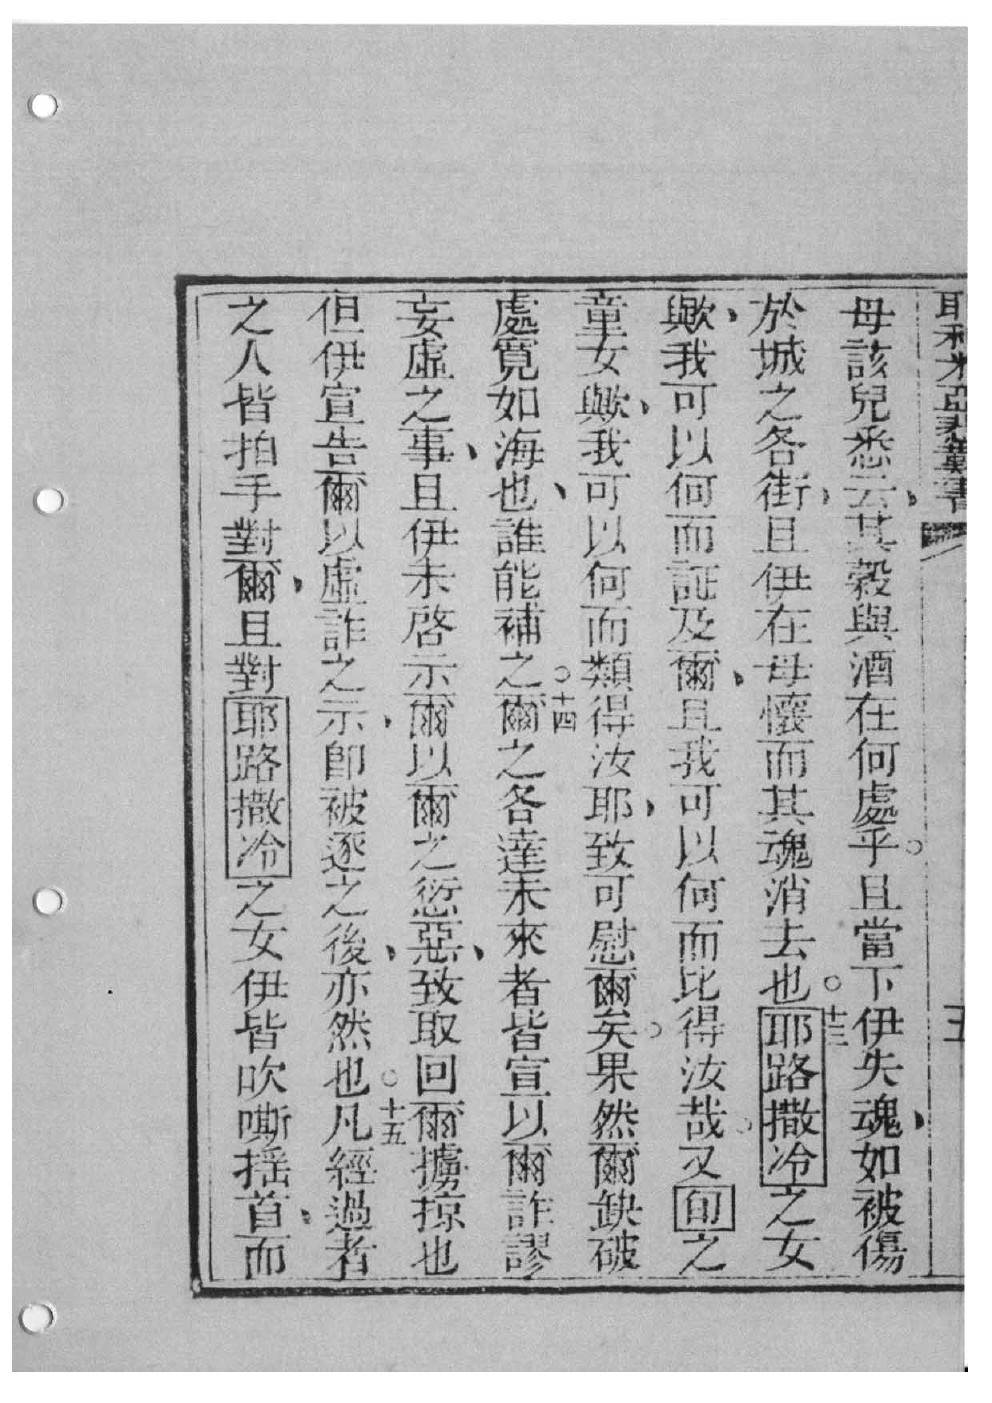 耶利米亞悲嘆書 五
母該兒悉云、其穀與酒在何處乎。且當下伊失魂、如被傷
於城之各街、且伊在母懷而其魂消去也。十三耶路撒冷之女
歟、我可以何而証及爾、且我可以何而比得汝哉。又旬之
童女歟、我可以何而類得汝耶、致可慰爾矣。果然爾缺破
處寬如海也、誰能補之。十四爾之各達未來者皆宣以爾詐謬
妄虛之事、且伊未啓示爾以爾之愆惡、致取回爾擄掠也
但伊宣告爾以虛詐之示、卽被逐之後、亦然也。十五凡經過者
之人皆拍手對爾、且對耶路撒冷之女伊皆吹嘶搖首、而